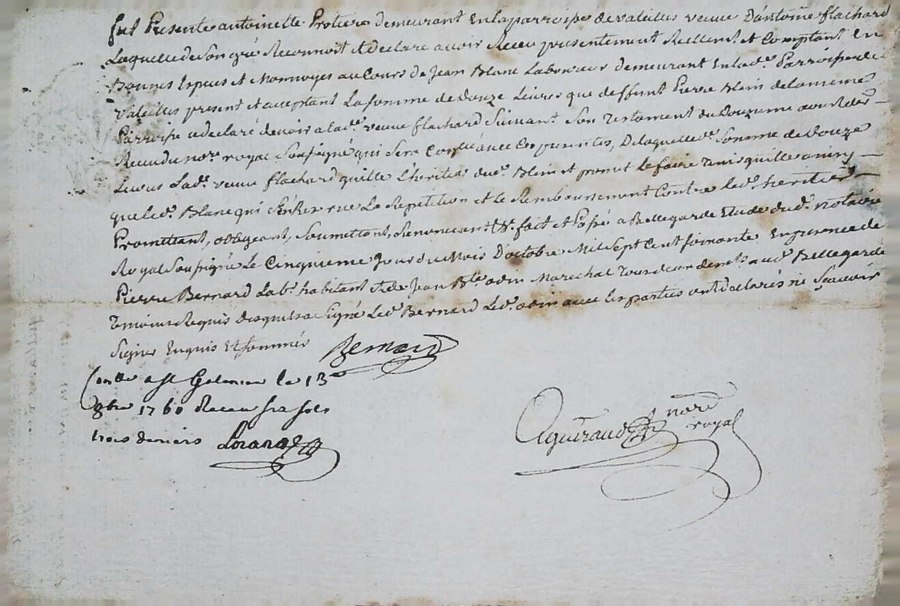 fut Presente antoinette Protiere demeurant En la parroisse de valeilles veuve D'antoine flachard
Laquelle de Son gre Reconnoit et Declare avoir Receu presentement Reellemt et Comptant En
Bonnes Especes et Monnoyes au Cours de Jean Blanc Laboureur demeurant En lade Parroisse de
valeilles present et acceptant La somme de douze Livres que deffunt Pierre de la meme
Parroisse a declaré devoir a lade veuve flachard Suivant Son Testament du Douzieme
Receu du nore royal Soussigné qui Sera Controllé avec Ces presentes, De laquelle de Somme de Douze
Livres Lade veuve flachard quitte L'heritier dud et promet le faire tenir quitte
que led Blanc qui la Repetition et le Remboursement Contre led heritier
Promettant, obligeant, Soumettant, Renonceant &c fait et Passé a Bellegarde Etude dud notaire
Royal Soussigné Le Cinquieme Jour du Mois D'octobre Mil Sept Cent Soixante En presence de
Pierre Bernard Labr habitant de Jean Bte Marechal aud Bellegarde
temoins Requis Signé Led Bernard Led avec les parties ont declarés ne Scavoir
Signer Enquis Et Sommés Bernard
Contlle a St Galmier le 13e
8bre 1760 Receu six sols
trois deniers
Agueraud nore
royal